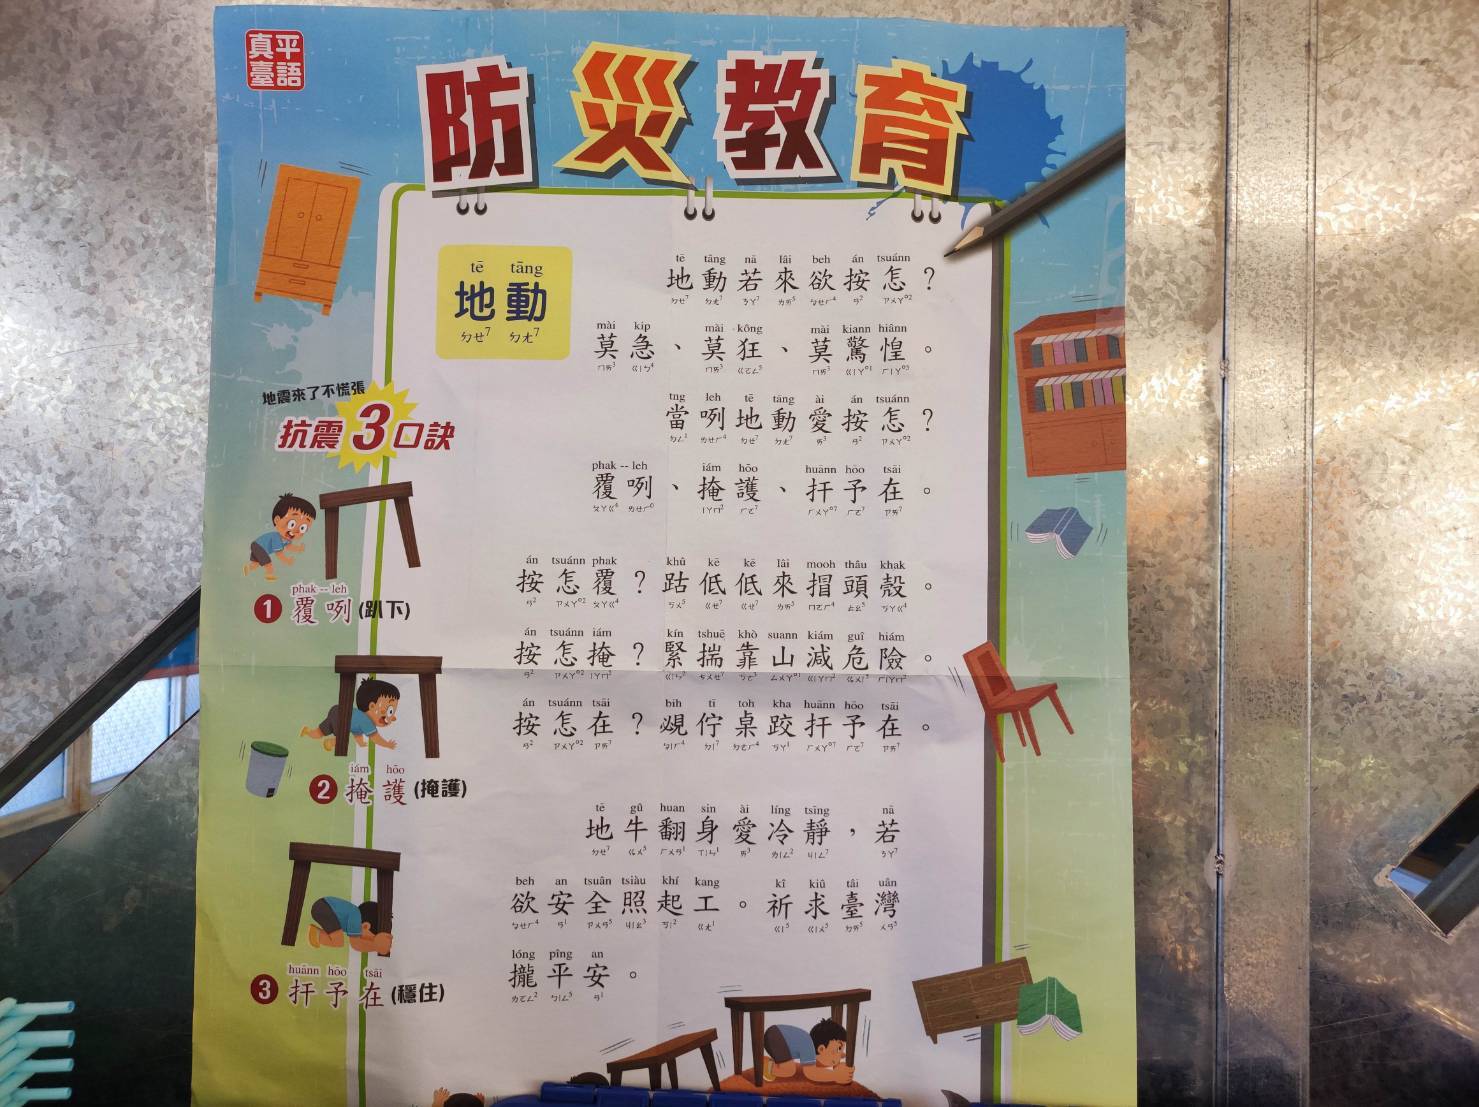 真平
臺語
防災教育
tē tāng
地動
ㄉㄝ7 ㄉㄤ7
tē tāng nā lâi beh án tsuánn
地動若來欲按怎？
mài kip mài kông mài kiann hiânn
莫急、莫狂、莫驚惶。
tng leh tē tāng ài án tsuánn
當咧地動愛按怎？
phak -- leh iám hōo huānn hōo tsāi
覆咧、掩護、扞予在。
án tsuánn phak khû kē kē lâi mooh thâu khak
按怎覆？跍低低來揯頭殼。
án tsuánn iám kín tshuē khò suann kiám guî hiám
按怎掩？緊揣靠山減危險。
án tsuánn tsāi bih tī toh kha huānn hōo tsāi
按怎在？覕佇桌跤扞予在。
tē gû huan sin ài líng tsīng nā
地牛翻身愛冷靜，若
beh an tsuân tsiàu khí kang kî kiû tâi uân
欲安全照起工。祈求臺灣
lóng pîng an
攏平安。
地震來了不慌張
抗震3口訣
phak -- leh
1 覆咧(趴下)
iám hōo
2 掩護(掩護)
huānn hōo tsāi
3 扞予在(穩住)